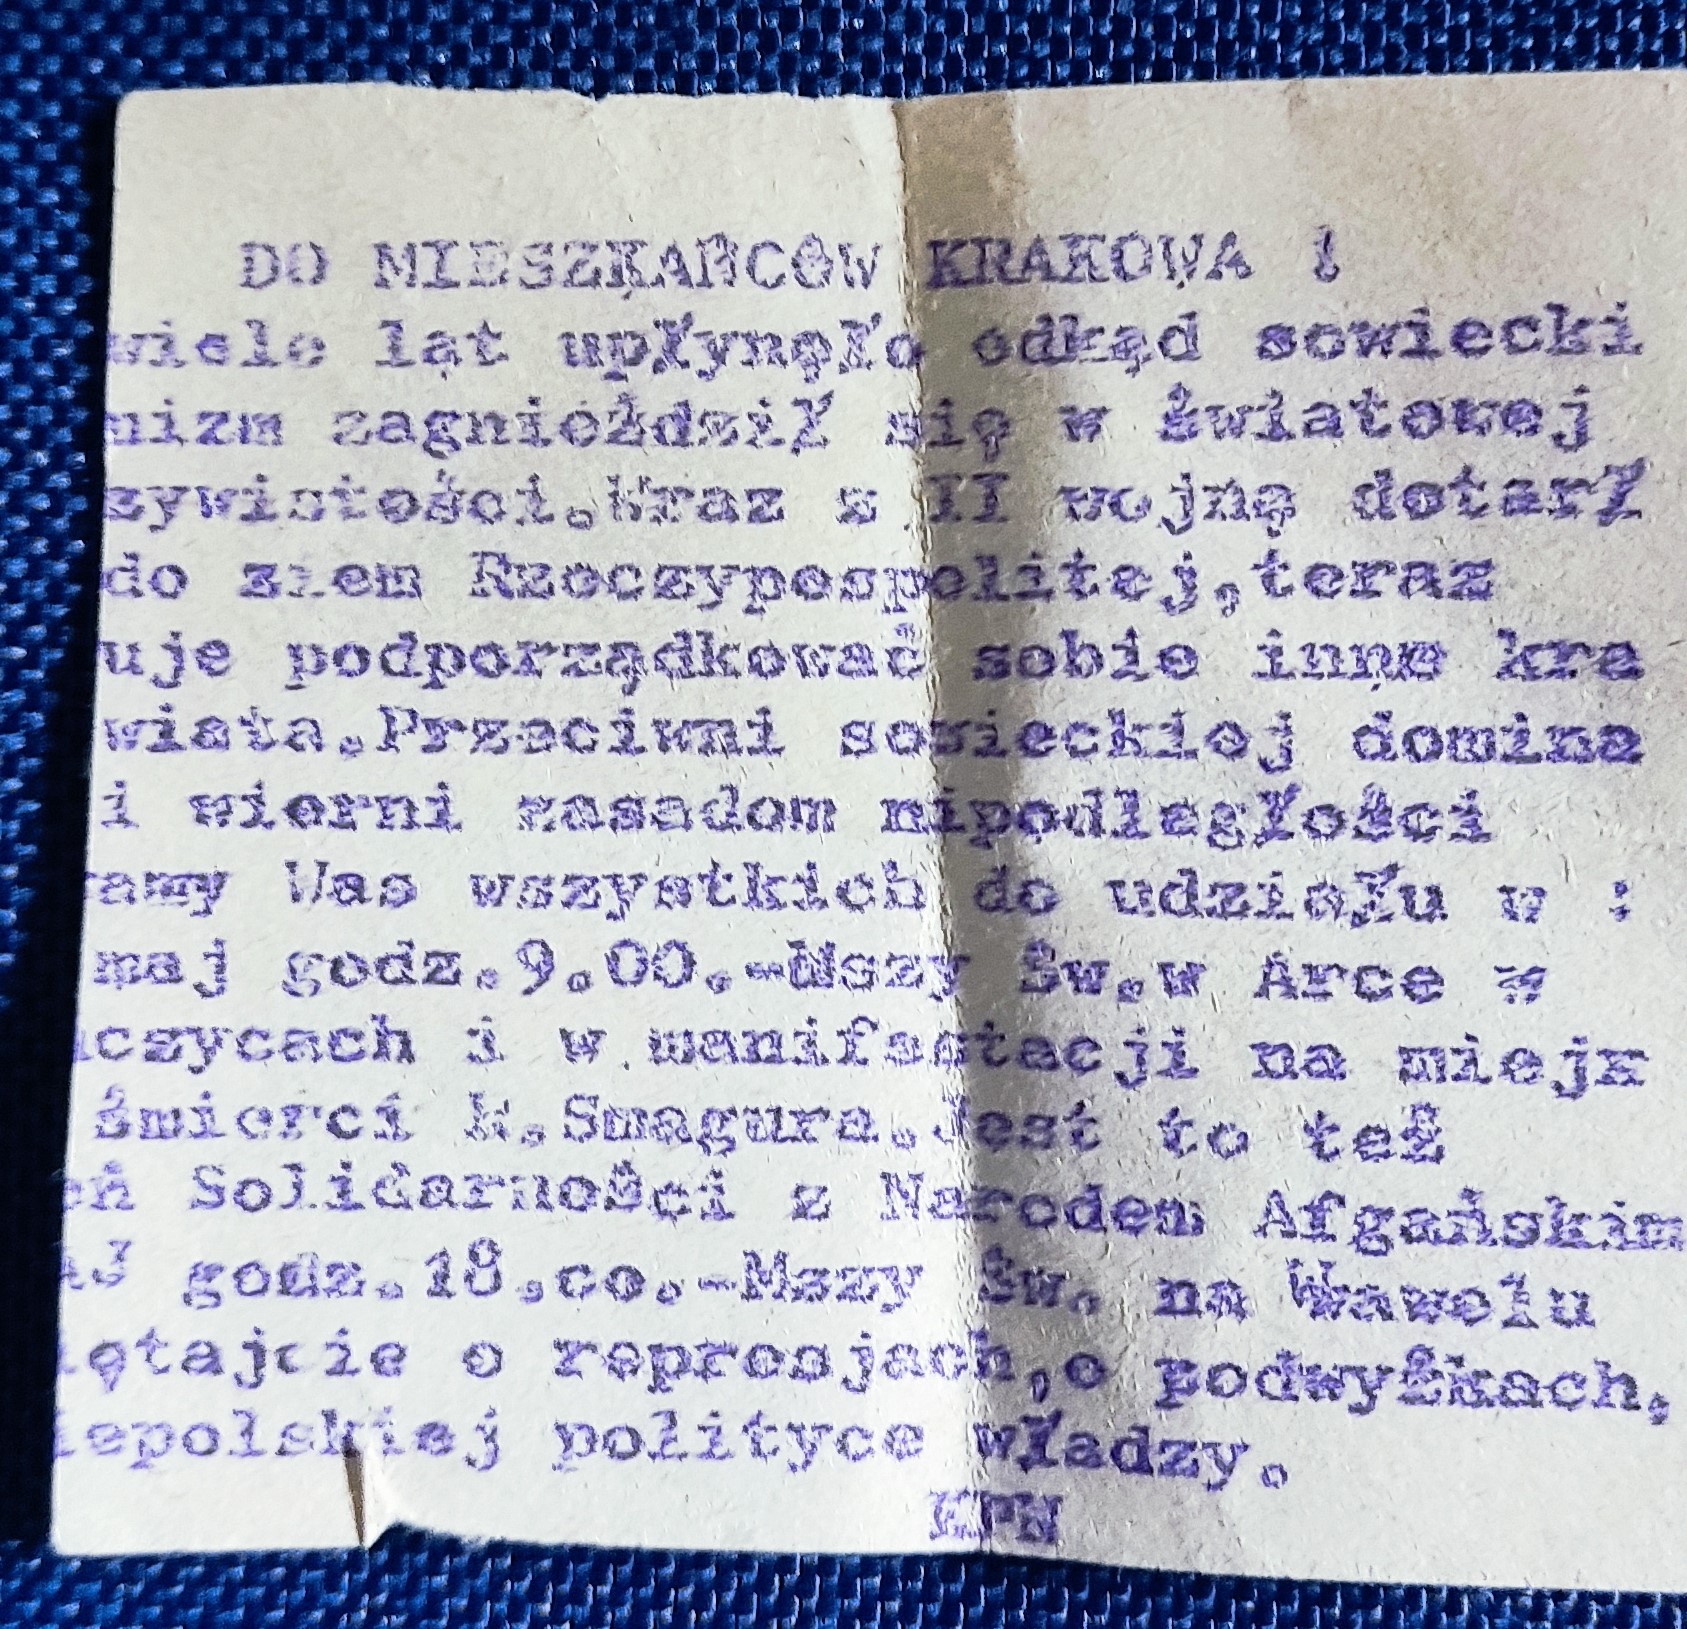 DO MIESZKAŃCÓW KRAKOWA !
wiele lat upłynęło odkąd sowiecki
nizm zagnieździł się w światowej
zywistości.Wraz z II wojną dotarł
do ziem Rzeczypospolitej,teraz
uje podporządkować sobie inne kra
wiata.Przeciwni sowieckiej domina
i wierni zasadom nipodległości
ramy Was wszystkich do udziału w :
maj godz.9.00.-Mszy Św.w Arce w
czycach i w manifestacji na miejs
śmierci R.Smagura.Jest to też
eń Solidarności z Narodem Afgańskim
AJ godz.18.oo.-Mszy Św. na Wawelu
iętajcie o represjach,o podwyżkach,
iepolskiej polityce władzy.
KPN